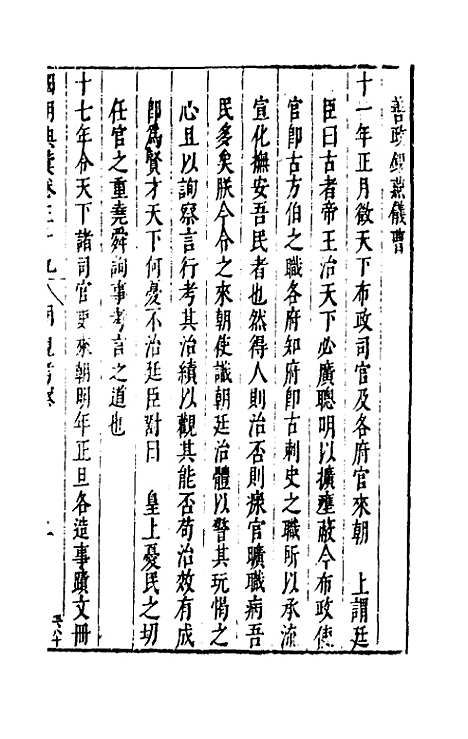 善政錫燕儀曹
十一年正月徵天下布政司官及各府官來朝　上謂廷
臣曰古者帝王治天下必廣聰明以擴壅蔽今布政使
官卽古方伯之職各府知府卽古刺史之職所以承流
宣化撫安吾民者也然得人則治否則瘝官曠職病吾
民多矣朕今令之來朝使識朝廷治體以警其玩愒之
心且以詢察言行考其治績以觀其能否苟治效有成
卽爲賢才天下何憂不治廷臣對曰　皇上憂民之切
任官之重堯舜詢事考言之道也
十七年令天下諸司官吏來朝明年正旦各造事蹟文冊
國朝典彙卷三十九　朝覲考察